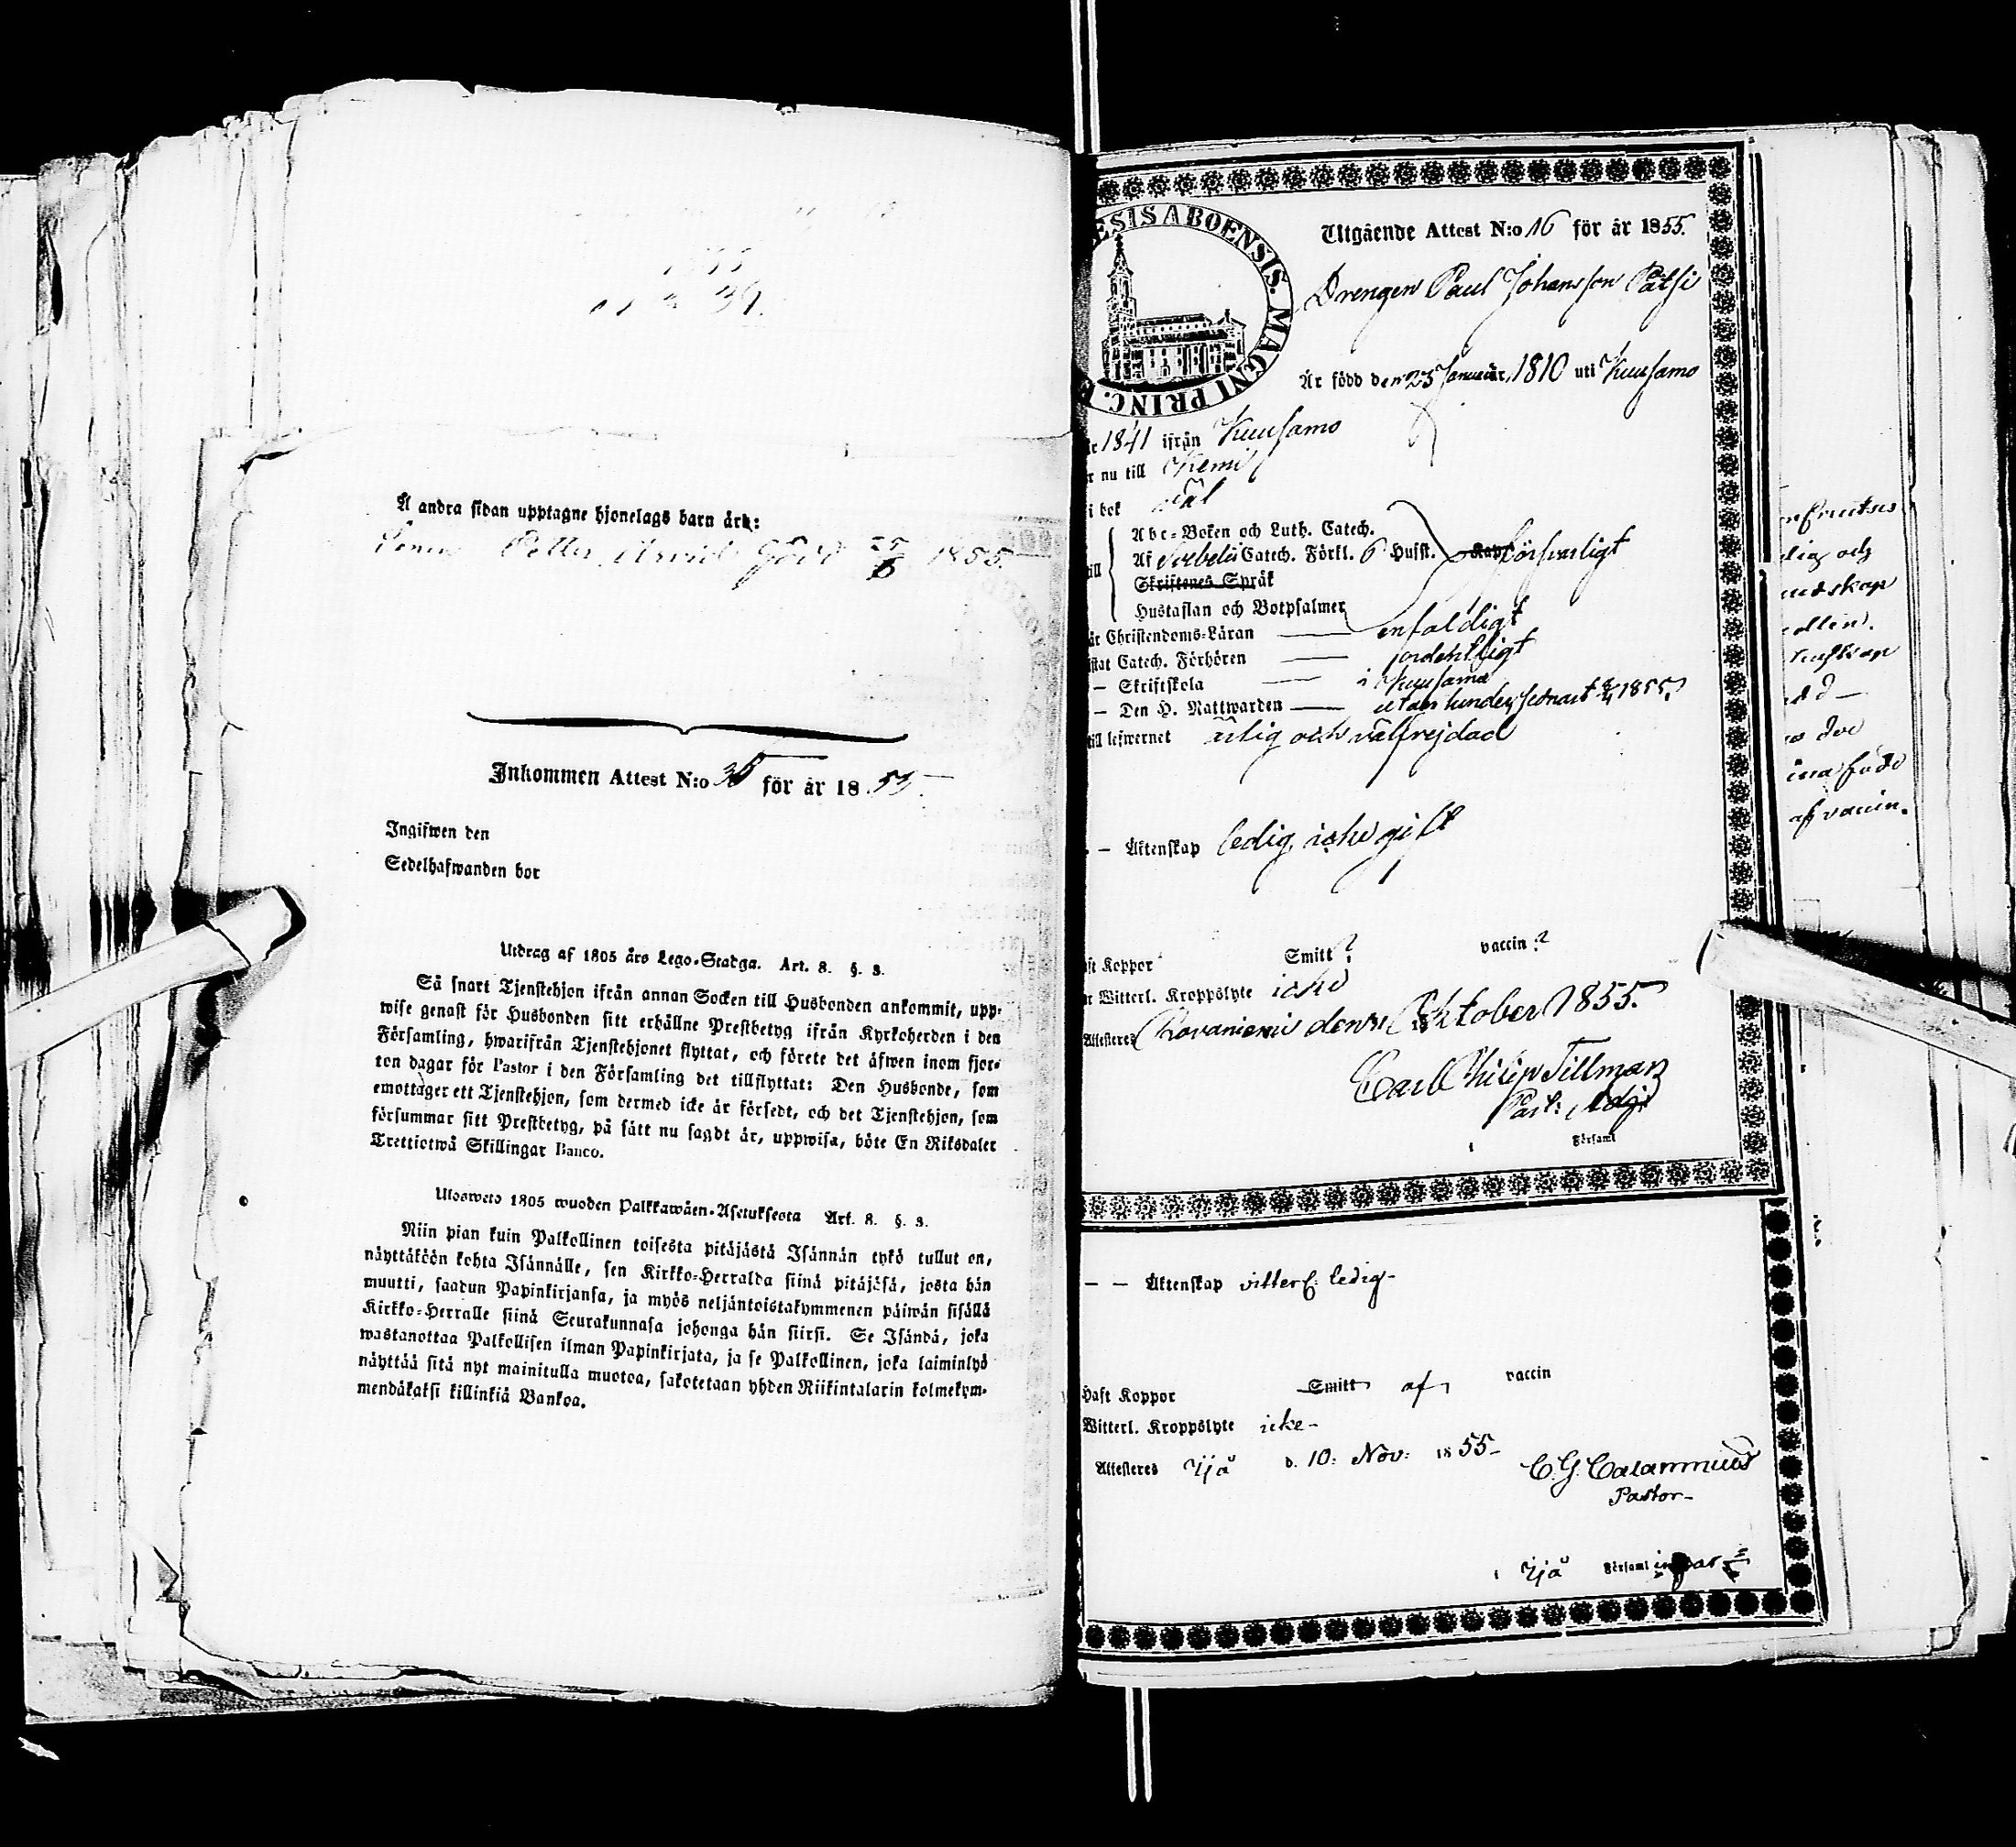 Å andra sidan upptagne hjonelags barn äro:
Petter Arvid född 1855
Inkommen Attest N:o 35 för år 1855
Ingifwen den
Sedelhafwanden bor
Utdrag af 1805 års Lego-Stadga. Art. 8. §. 3.
Så snart Tjenstehjon ifrån annan Socken till Husbonden ankommit, upp-
wise genast för Husbonden sitt erhållne Prestbetyg ifrån Kyrkoherden i den
Församling, hwarifrån Tjenstehjonet flyttat, och förete det äfwen inom fjor-
ton dagar för Pastor i den Församling det tillflyttat: Den Husbonde, som
emottager ett Tjenstehjon, som dermed icke är försedt, och det Tjenstehjon, som
försummar sitt Prestbetyg, på sätt nu sagdt är, uppwisa, böte En Riksdaler
Trettiotwå Skillingar Banco.
Ulosweto 1805 wuoden Palkkawäen-Asetuksesta Art. 8. §. 3.
Niin pian kuin Palkollinen toisesta pitäjästä Isännän tykö tullut on,
näyttäköön kohta Isännälle, sen Kirkko-Herralda siinä pitäjäsä, josta hän
muutti, saadun Papinkirjansa, ja myös neljäntoistakymmenen päiwän sisällä
Kirkko-Herralle siinä Seurakunnasa johonga hän siirsi. Se Isändä, joka
wastanottaa Palkollisen ilman Papinkirjata, ja se Palkollinen, joka laiminlyö
näyttää sitä nyt mainitulla muotoa, sakotetaan yhden Riikintalarin kolmekym-
mendäkaksi killinkiä Bankoa.
ESIS ABOENSIS. MAGNI PRINC.
Utgående Attest N:o 16 för år 1855.
Drengen Paul Johansson Pätsi
Är född den 23 Januarii 1810 uti Kuusamo
år 1841 ifrån Kuusamo
r nu till Kemi
i bok väl
Abc-Boken och Luth. Catech.
Af Svebelii Catech. Förkl. 6 Husst. försvarligt
Skriftenes Språk
Hustaflan och Botpsalmer
är Christendoms-Läran enfaldigt
istat Catech. Förhören ordentligt
– Skriftskola i Kuusamo
– Den H. Nattwarden utan hinder senast 1855
till lefwernet ärlig och välfrejdad
– Äktenskap ledig, icke gift
aft Koppor Smitt? vaccin?
r Witterl. Kroppslyte icke
Attesteres Rovaniemi den Oktober 1855.
Carl Philip Tillman
Past: Adj:
i Församl
– – Äktenskap vitterl: ledig-
Haft Koppor Smitt af vaccin
Witterl. Kroppslyte icke-
Attesteres Ijå d. 10: Nov: 1855-
C. G. Calamnius
Pastor-
i Ijå Församl
lig och
kunskap
af vaccin.